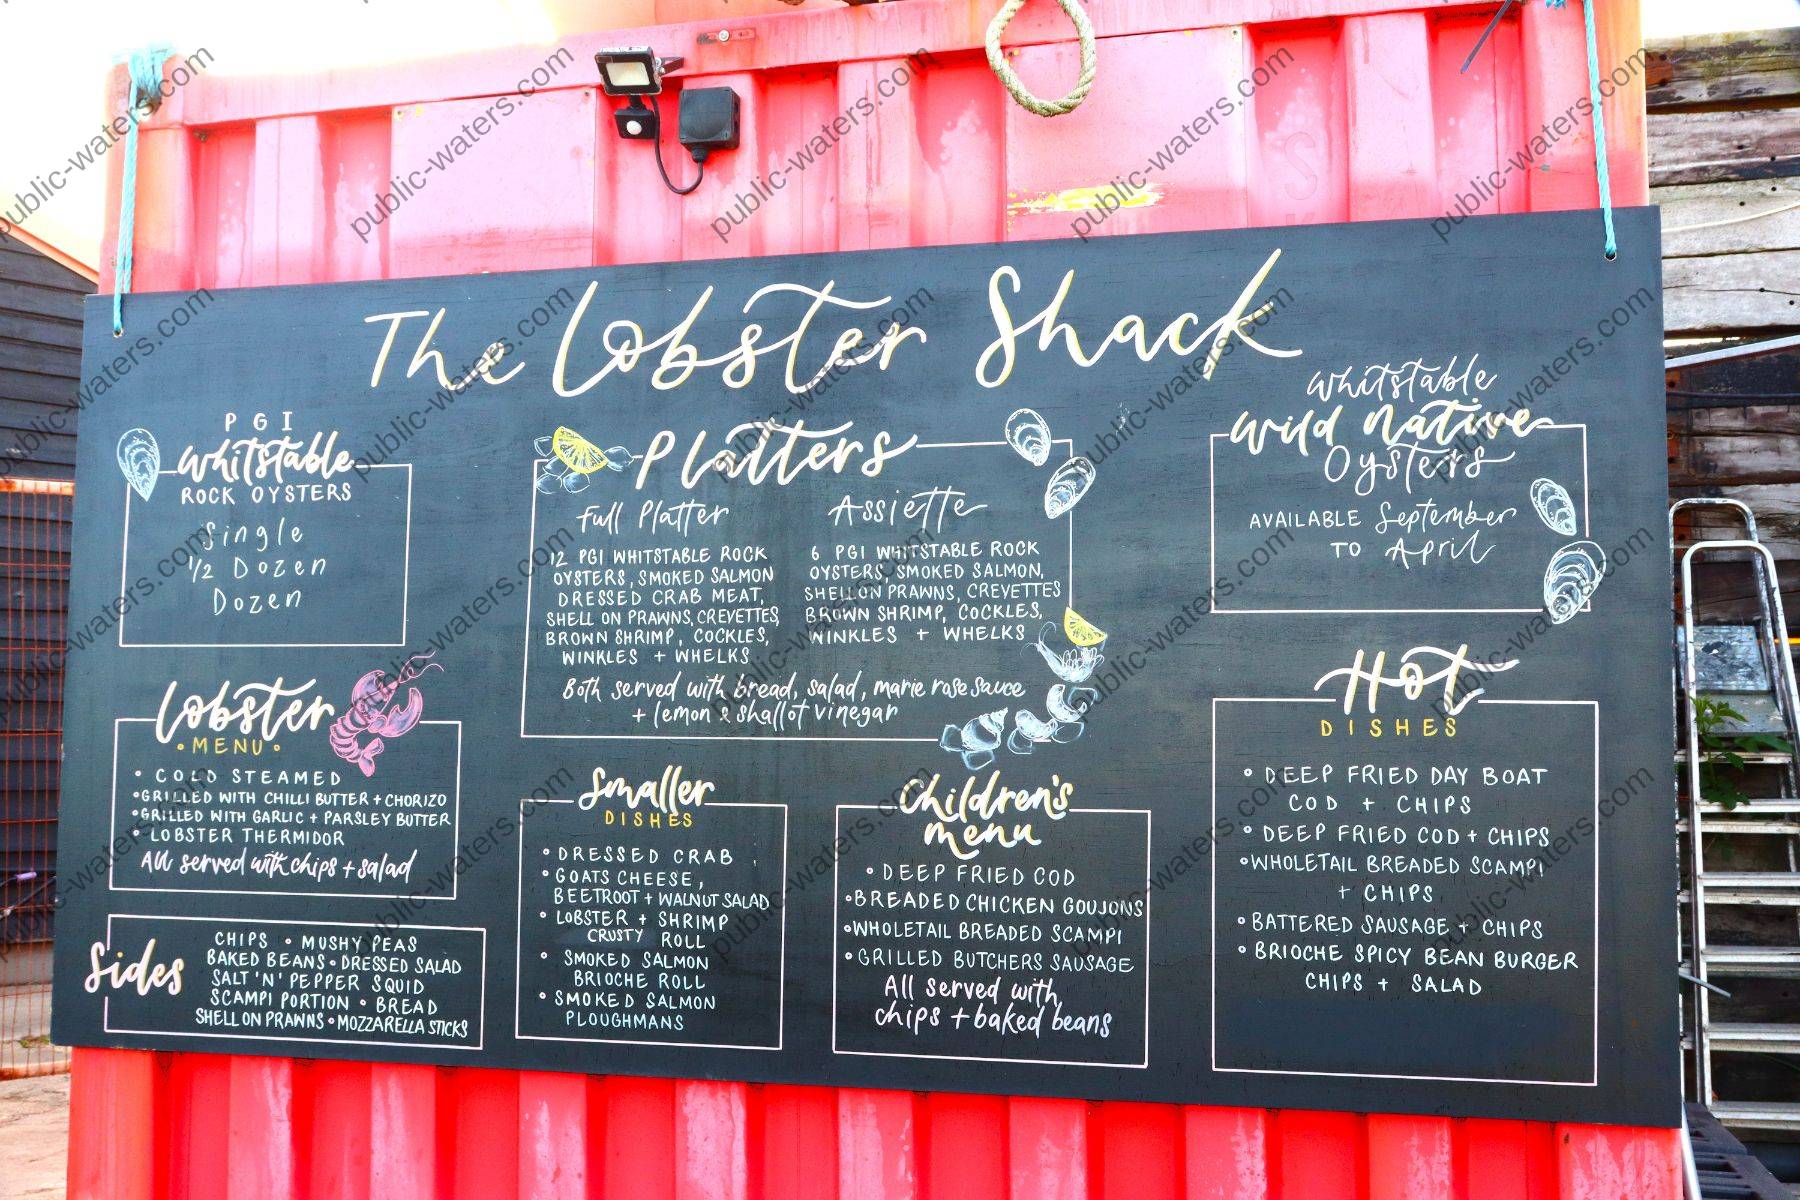 The Lobster Shack
PGI
Whitstable
ROCK OYSTERS
Single
1/2 Dozen
Dozen
Platters
Full Platter
12 PGI WHITSTABLE ROCK
OYSTERS, SMOKED SALMON
DRESSED CRAB MEAT,
SHELL ON PRAWNS, CREVETTES,
BROWN SHRIMP, COCKLES,
WINKLES + WHELKS
Assiette
6 PGI WHITSTABLE ROCK
OYSTERS, SMOKED SALMON,
SHELL ON PRAWNS, CREVETTES
BROWN SHRIMP, COCKLES,
WINKLES + WHELKS
Both served with bread, salad, marie rose sauce
+ lemon & shallot vinegar
Whitstable
Wild Native
Oysters
AVAILABLE September
TO April
Lobster
• MENU •
• COLD STEAMED
• GRILLED WITH CHILLI BUTTER + CHORIZO
• GRILLED WITH GARLIC + PARSLEY BUTTER
• LOBSTER THERMIDOR
All served with chips + salad
Sides
CHIPS • MUSHY PEAS
BAKED BEANS • DRESSED SALAD
SALT 'N' PEPPER SQUID
SCAMPI PORTION • BREAD
SHELL ON PRAWNS • MOZZARELLA STICKS
Smaller
DISHES
• DRESSED CRAB
• GOATS CHEESE,
BEETROOT + WALNUT SALAD
• LOBSTER + SHRIMP
CRUSTY ROLL
• SMOKED SALMON
BRIOCHE ROLL
• SMOKED SALMON
PLOUGHMANS
Children's
menu
• DEEP FRIED COD
• BREADED CHICKEN GOUJONS
• WHOLETAIL BREADED SCAMPI
• GRILLED BUTCHERS SAUSAGE
All served with
chips + baked beans
Hot
DISHES
• DEEP FRIED DAY BOAT
COD + CHIPS
• DEEP FRIED COD + CHIPS
• WHOLETAIL BREADED SCAMPI
+ CHIPS
• BATTERED SAUSAGE + CHIPS
• BRIOCHE SPICY BEAN BURGER
CHIPS + SALAD
public-waters.com